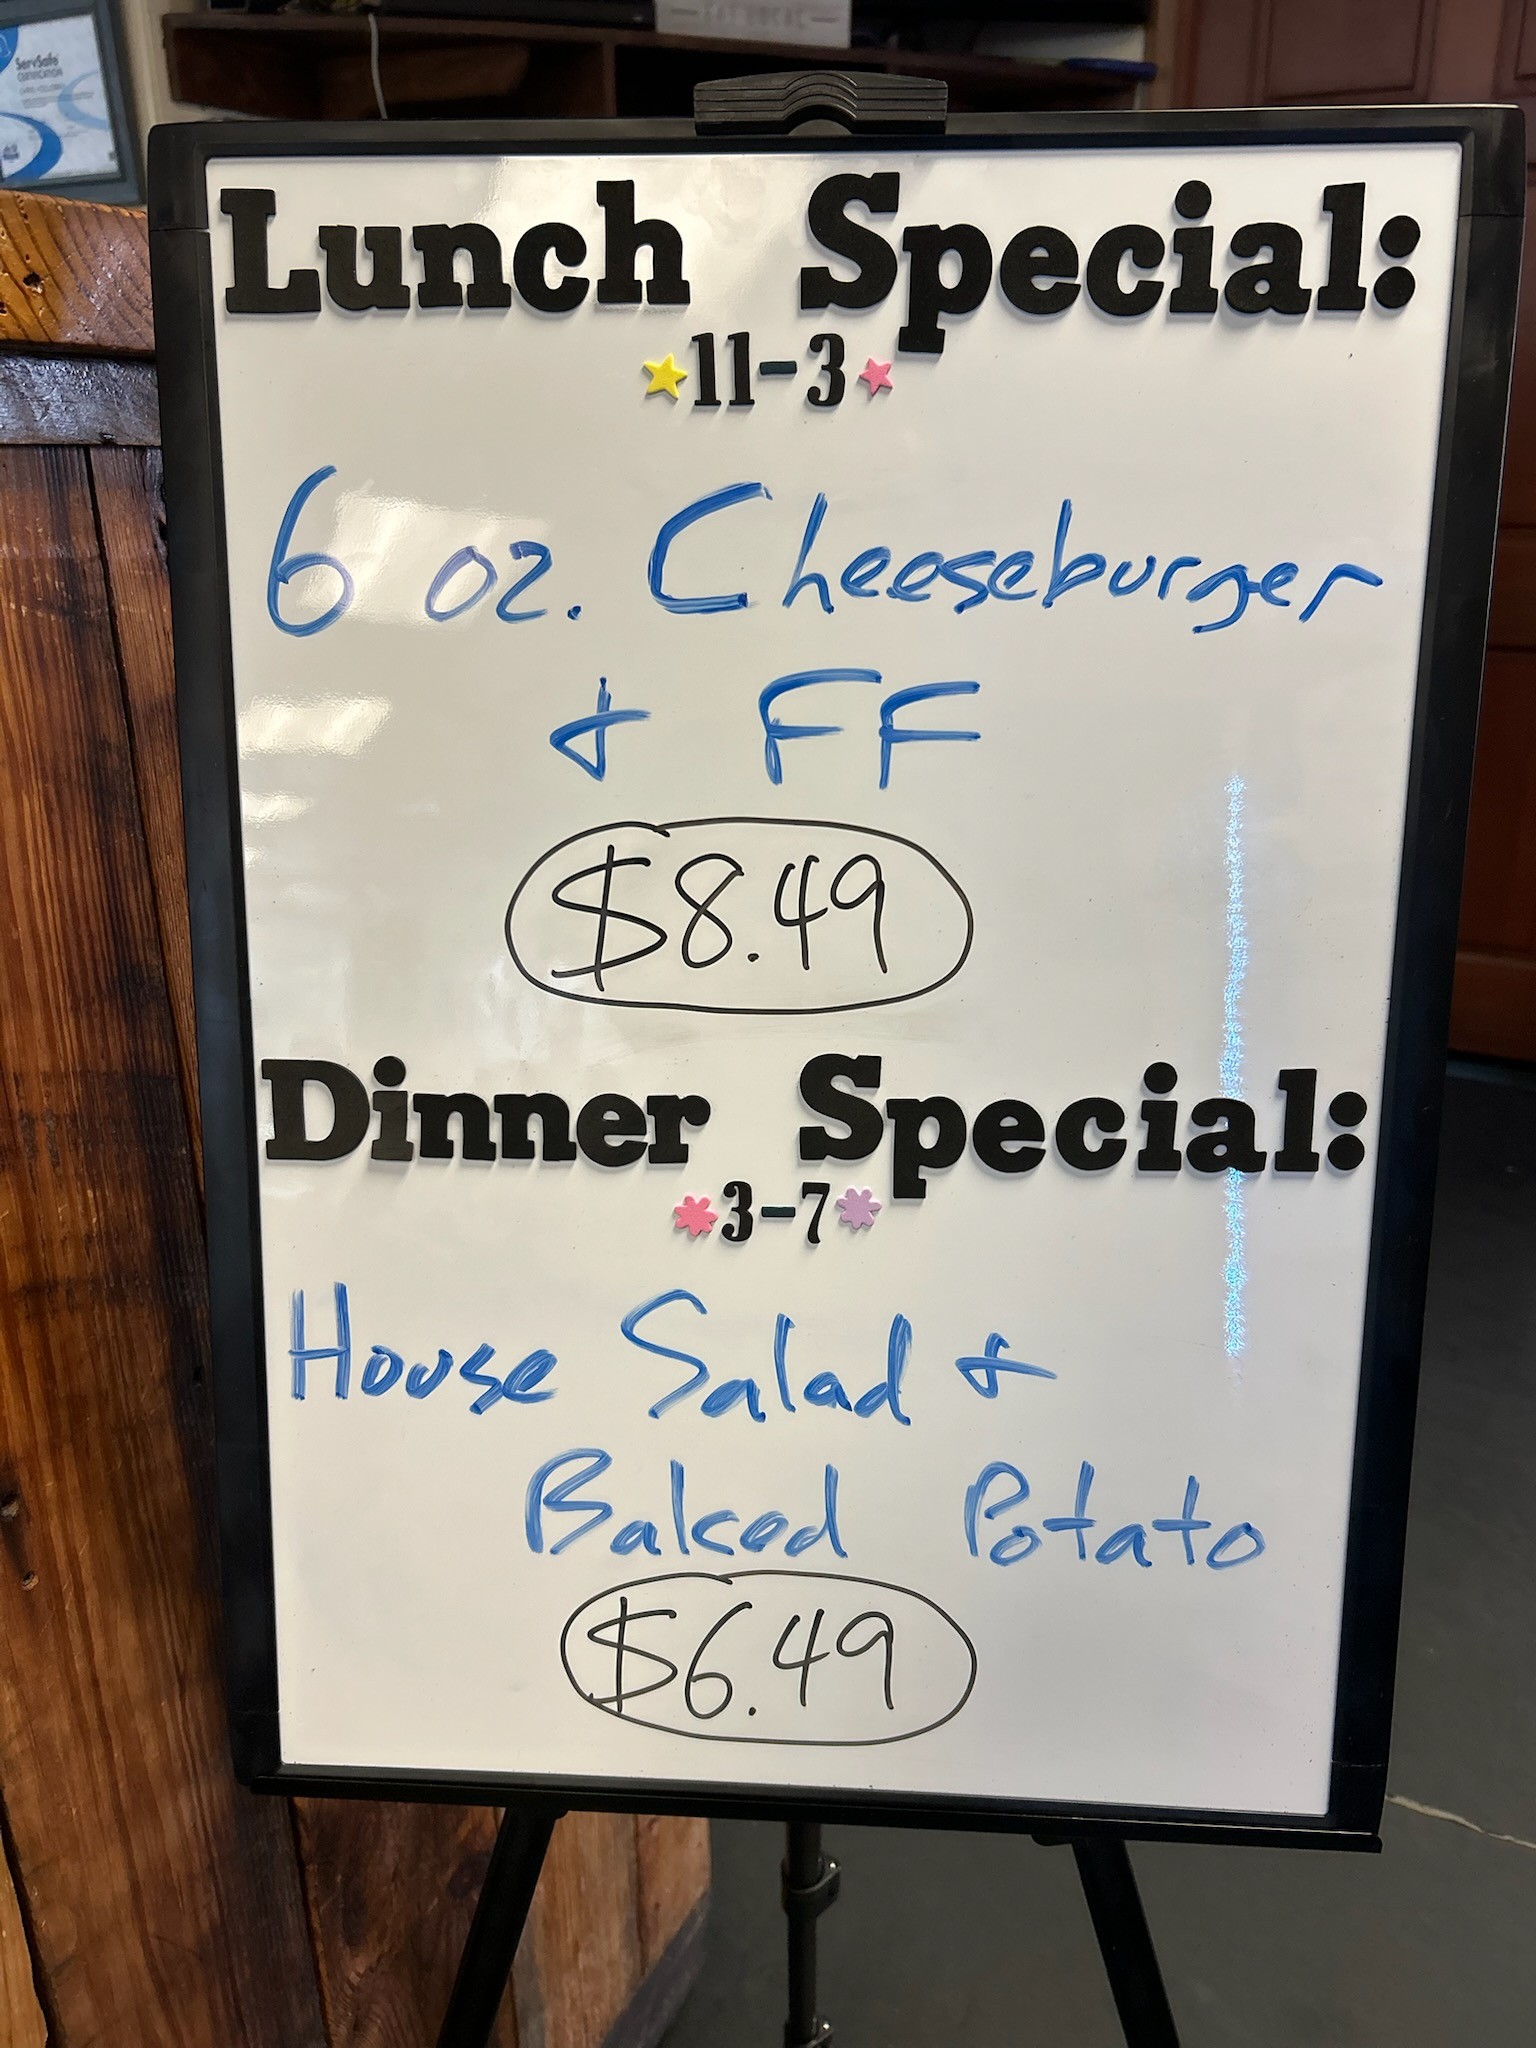 ServSafe
CERTIFICATION
EAT LOCAL
Lunch Special:
11-3
6 oz. Cheeseburger
+ FF
$8.49
Dinner Special:
3-7
House Salad +
Baked Potato
$6.49